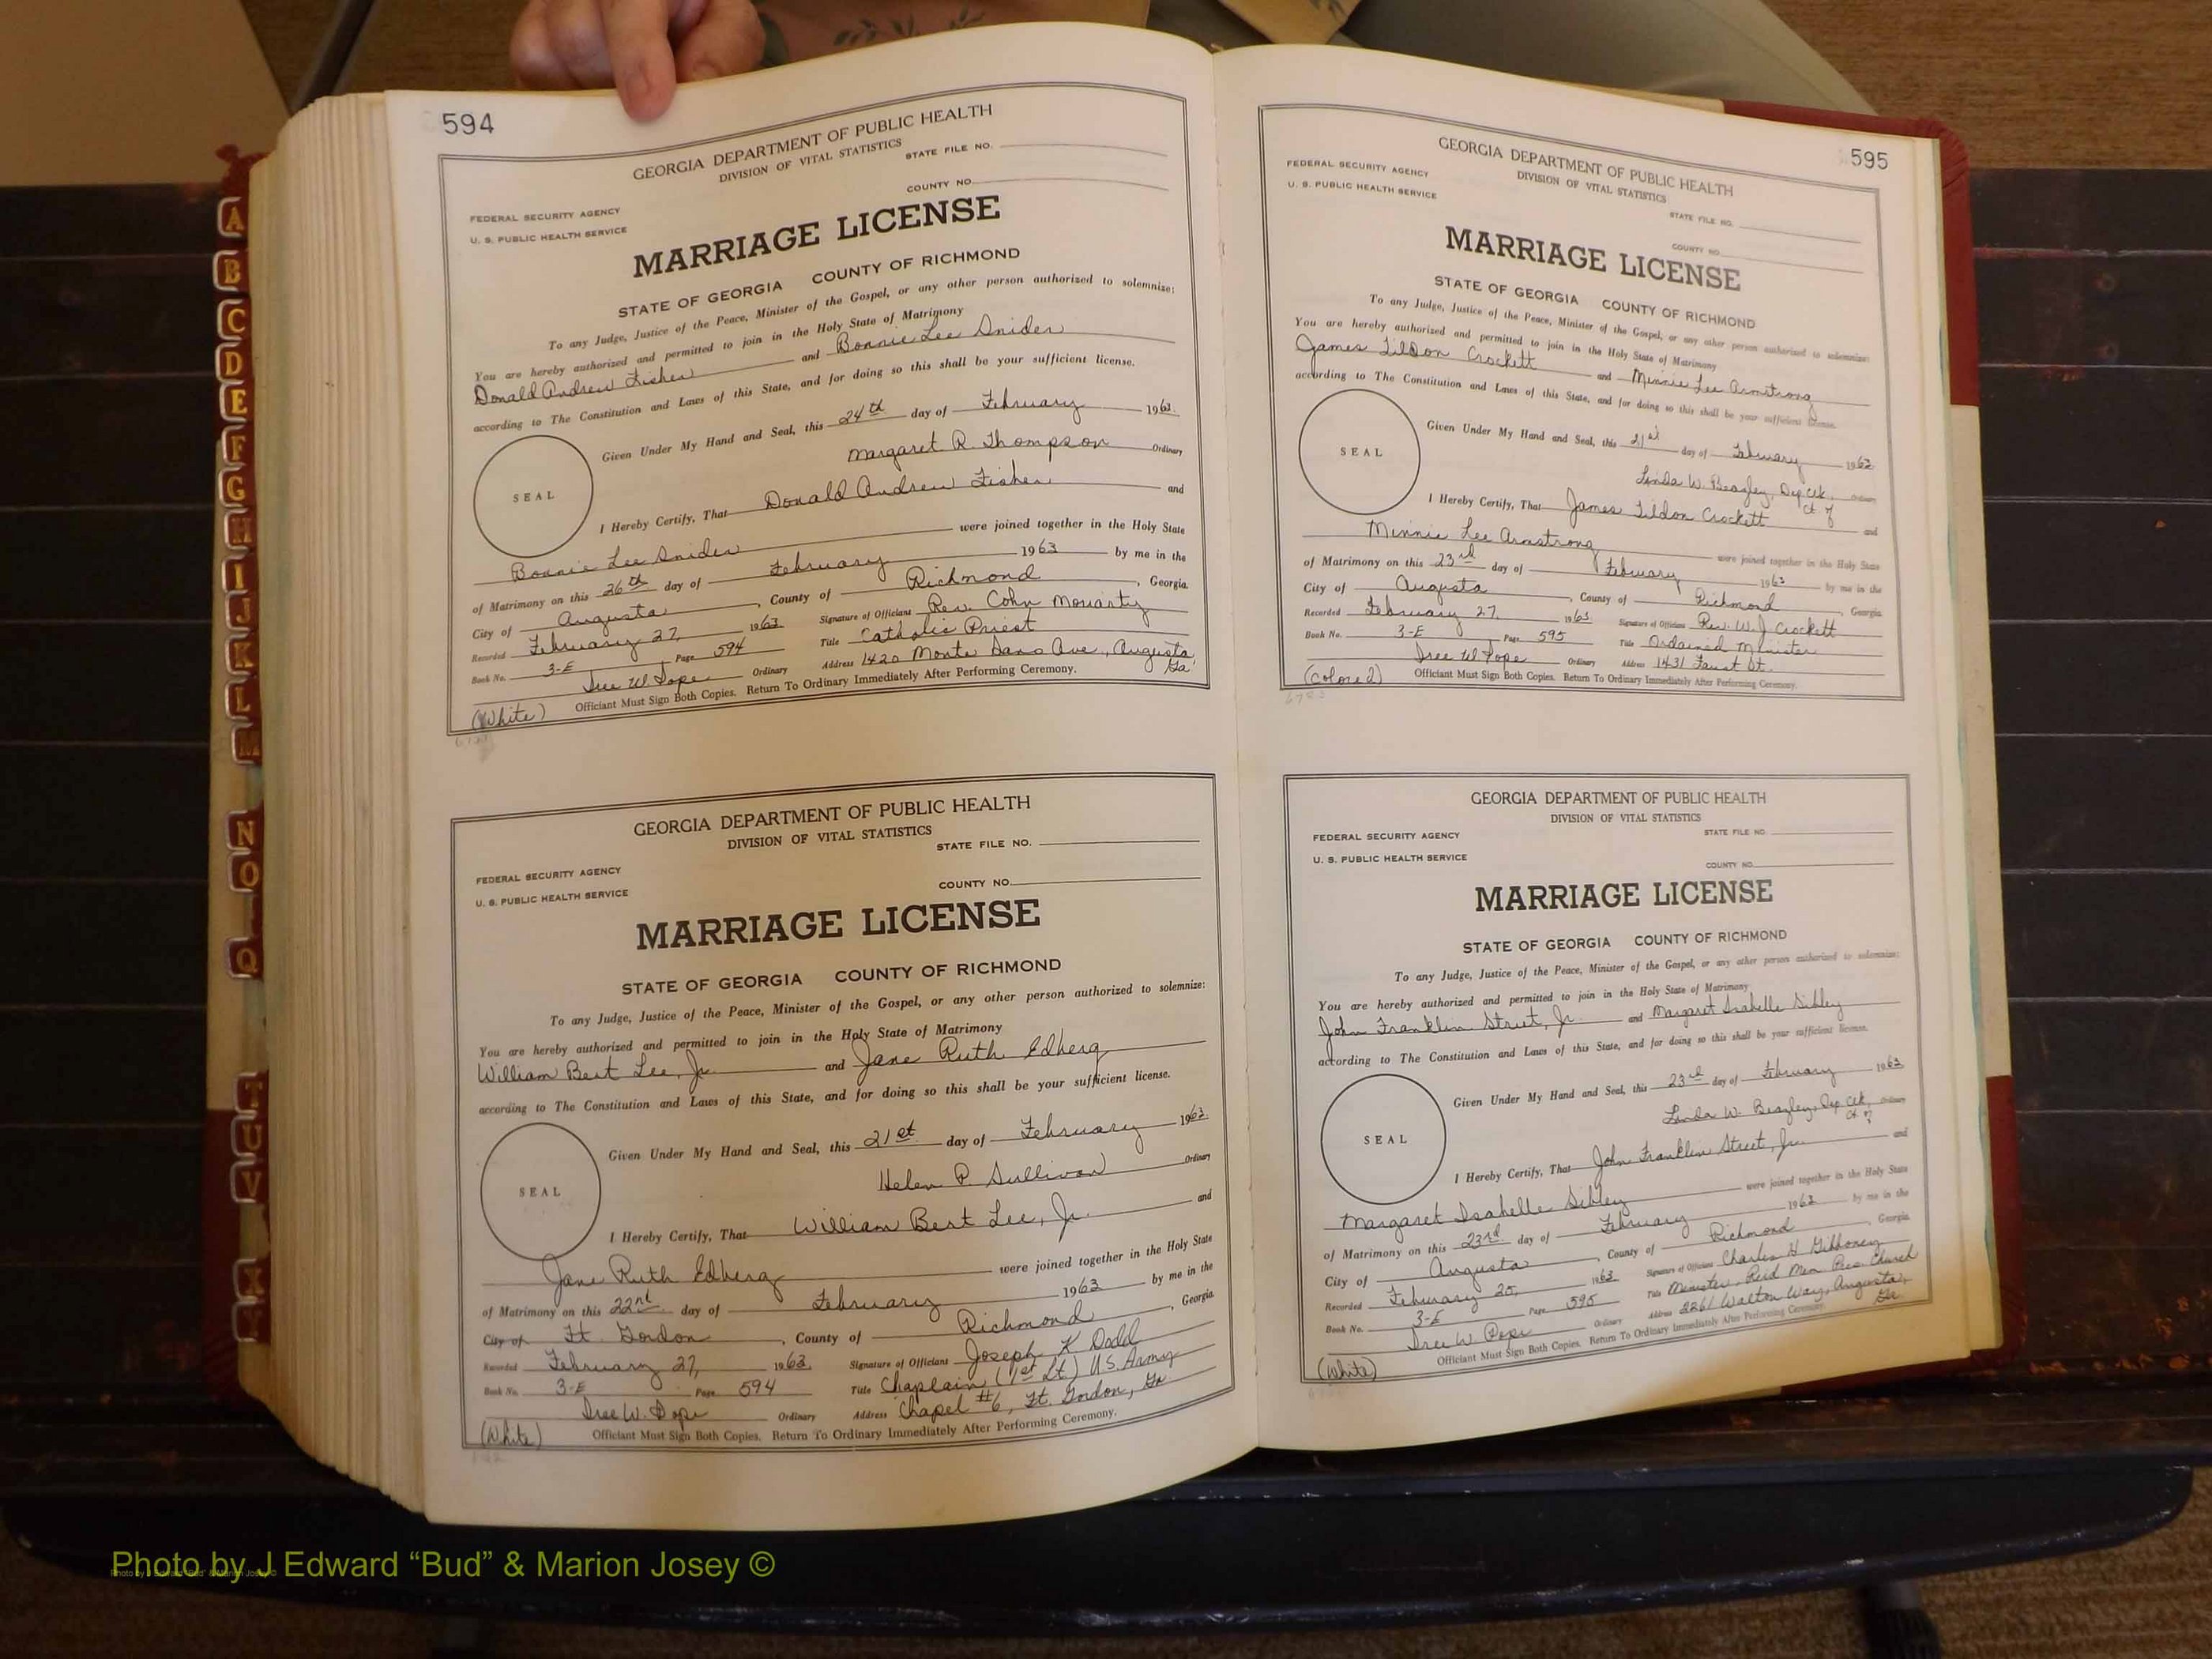 594
GEORGIA DEPARTMENT OF PUBLIC HEALTH
DIVISION OF VITAL STATISTICS
STATE FILE NO.
COUNTY NO.
FEDERAL SECURITY AGENCY
U. S. PUBLIC HEALTH SERVICE
MARRIAGE LICENSE
STATE OF GEORGIA COUNTY OF RICHMOND
To any Judge, Justice of the Peace, Minister of the Gospel, or any other person authorized to solemnize:
You are hereby authorized and permitted to join in the Holy State of Matrimony
Donald Andrew Fisher and Bonnie Lee Snider
according to The Constitution and Laws of this State, and for doing so this shall be your sufficient license.
Given Under My Hand and Seal, this 24th day of February 1963.
Margaret R. Thompson Ordinary
SEAL
I Hereby Certify, That Donald Andrew Fisher and
Bonnie Lee Snider were joined together in the Holy State
of Matrimony on this 26th day of February 1963 by me in the
City of Augusta, County of Richmond, Georgia.
Recorded February 27, 1963. Signature of Officiant Rev. Cohn Moriarty
Book No. 3-E Page 594 Title Catholic Priest
Ordinary Address 1420 Monte Sano Ave., Augusta, Ga
(White) Officiant Must Sign Both Copies. Return To Ordinary Immediately After Performing Ceremony.
GEORGIA DEPARTMENT OF PUBLIC HEALTH
DIVISION OF VITAL STATISTICS
STATE FILE NO.
FEDERAL SECURITY AGENCY
COUNTY NO.
U. S. PUBLIC HEALTH SERVICE
MARRIAGE LICENSE
STATE OF GEORGIA COUNTY OF RICHMOND
To any Judge, Justice of the Peace, Minister of the Gospel, or any other person authorized to solemnize:
You are hereby authorized and permitted to join in the Holy State of Matrimony
William Bert Lee, Jr. and Jane Ruth Edberg
according to The Constitution and Laws of this State, and for doing so this shall be your sufficient license.
Given Under My Hand and Seal, this 21st day of February 1963.
Helen P. Sullivan Ordinary
SEAL
I Hereby Certify, That William Bert Lee, Jr. and
Jane Ruth Edberg were joined together in the Holy State
of Matrimony on this 22nd day of February 1963 by me in the
City of Ft. Gordon, County of Richmond, Georgia.
Recorded February 27, 1963. Signature of Officiant Joseph K. Dodd
Book No. 3-E Page 594 Title Chaplain (1st Lt.) U.S. Army
Ordinary Address Chapel #6, Ft. Gordon, Ga
(White) Officiant Must Sign Both Copies. Return To Ordinary Immediately After Performing Ceremony.
595
GEORGIA DEPARTMENT OF PUBLIC HEALTH
DIVISION OF VITAL STATISTICS
FEDERAL SECURITY AGENCY
U. S. PUBLIC HEALTH SERVICE
STATE FILE NO.
COUNTY NO.
MARRIAGE LICENSE
STATE OF GEORGIA COUNTY OF RICHMOND
To any Judge, Justice of the Peace, Minister of the Gospel, or any other person authorized to solemnize:
You are hereby authorized and permitted to join in the Holy State of Matrimony
James Tildon Crockett and Minnie Lee Armstrong
according to The Constitution and Laws of this State, and for doing so this shall be your sufficient license.
Given Under My Hand and Seal, this 21st day of February 1963
Linda W. Beazley, Dep. Clk. Ct. of Ordinary
SEAL
I Hereby Certify, That James Tildon Crockett and
Minnie Lee Armstrong were joined together in the Holy State
of Matrimony on this 23rd day of February 1963 by me in the
City of Augusta, County of Richmond, Georgia
Recorded February 27, 1963. Signature of Officiant Rev. W. J. Crockett
Book No. 3-E Page 595 Title Ordained Minister
Ordinary Address 1431 Faust St.
(Colored) Officiant Must Sign Both Copies. Return To Ordinary Immediately After Performing Ceremony.
GEORGIA DEPARTMENT OF PUBLIC HEALTH
DIVISION OF VITAL STATISTICS
FEDERAL SECURITY AGENCY
STATE FILE NO.
U. S. PUBLIC HEALTH SERVICE
COUNTY NO.
MARRIAGE LICENSE
STATE OF GEORGIA COUNTY OF RICHMOND
To any Judge, Justice of the Peace, Minister of the Gospel, or any other person authorized to solemnize:
You are hereby authorized and permitted to join in the Holy State of Matrimony
John Franklin Street, Jr. and Margaret Isabelle Sibley
according to The Constitution and Laws of this State, and for doing so this shall be your sufficient license.
Given Under My Hand and Seal, this 23rd day of February 1963
Linda W. Beazley, Dep Clk. Ct. of Ordinary
SEAL
I Hereby Certify, That John Franklin Street, Jr. and
Margaret Isabelle Sibley were joined together in the Holy State
of Matrimony on this 23rd day of February 1963 by me in the
City of Augusta, County of Richmond, Georgia
Recorded February 1963. Signature of Officiant Charles H. Gibboney
Book No. 3-E Page 595 Title Minister, Reid Mem Pres Church
Ordinary Address 2261 Walton Way, Augusta, Ga.
(White) Officiant Must Sign Both Copies. Return To Ordinary Immediately After Performing Ceremony.
A
B
C
D
E
F
G
H
I
J
K
L
M
N
O
Q
T
U
V
X
Y
Photo by J Edward “Bud” & Marion Josey ©
Photo by J Edward “Bud” & Marion Josey ©